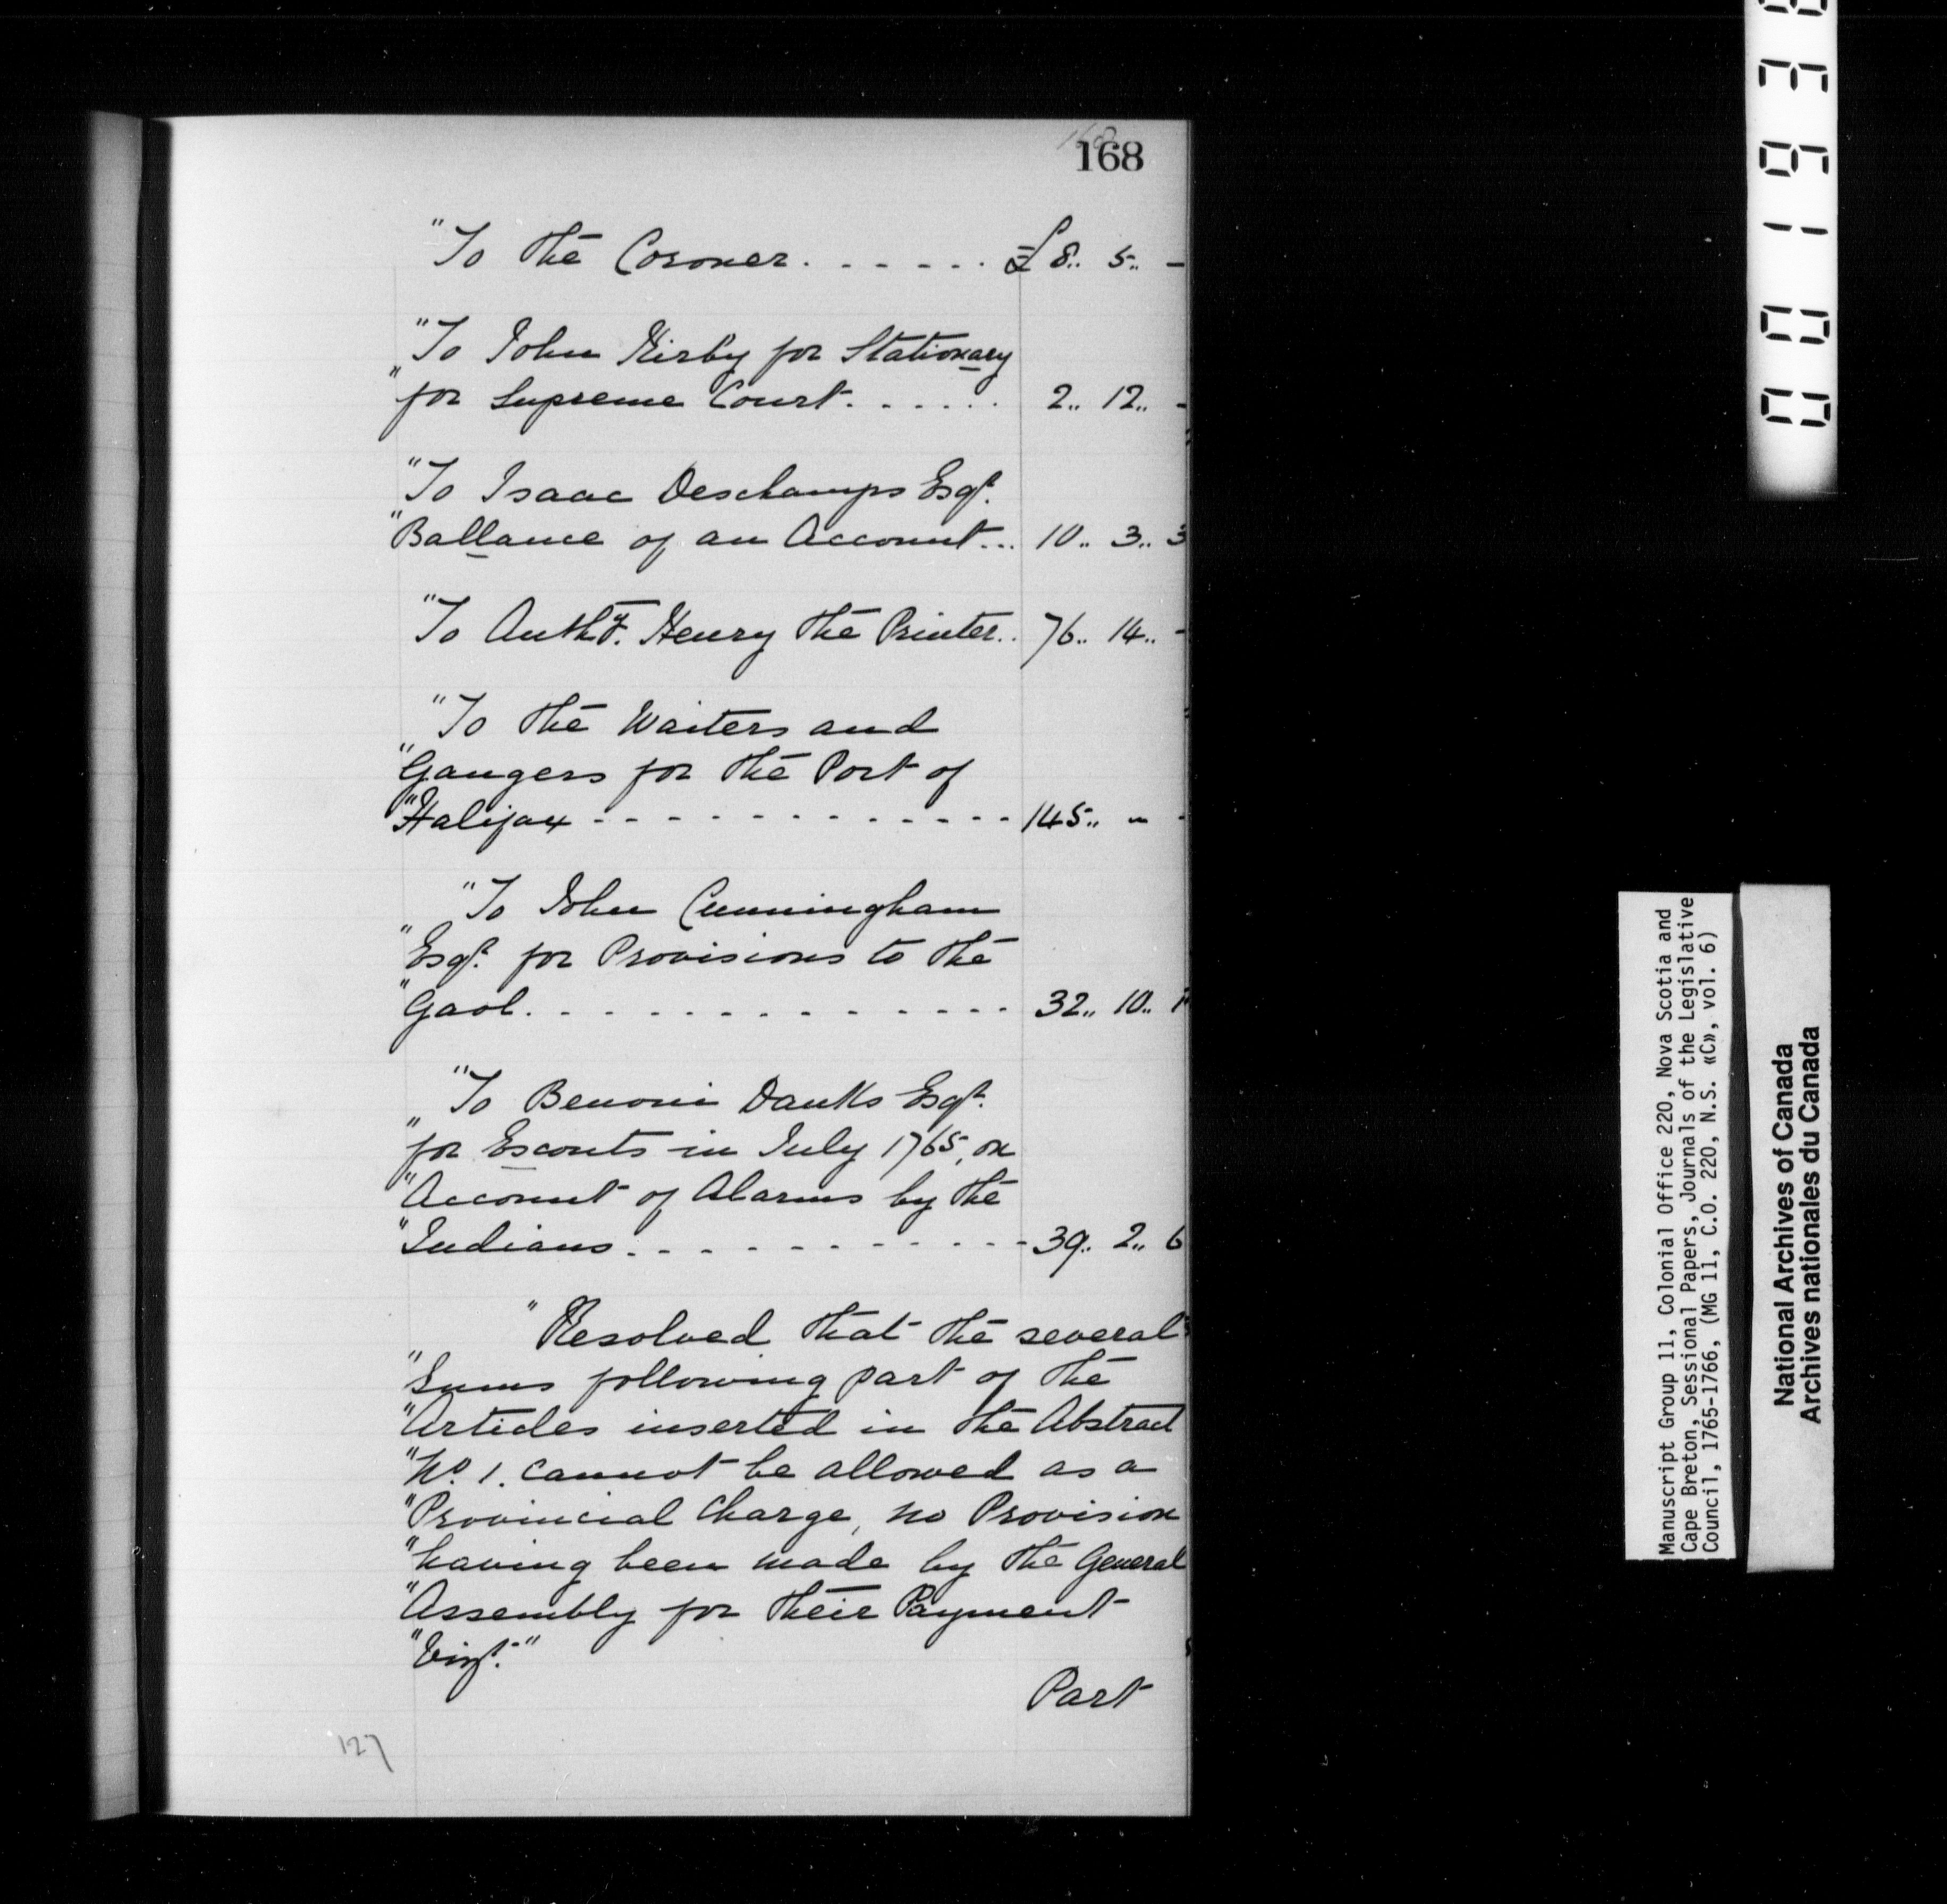 168
168
"To the Coroner. . . . . . . £8.. 5.. –
"To John Kirby for Stationary
"for Supreme Court. . . . . . 2.. 12.. -
"To Isaac Deschamps Esqr.
"Ballance of an Account... 10.. 3.. 3
"To Anthy. Henry the Printer.. 76.. 14.. -
"To the Waiters and
"Gaugers for the Port of
"Halifax - - - - - - - - - - - - - 145.. " -
"To John Cunningham
"Esqr. for Provisions to the
"Gaol. . . . . . . . . . . . . . 32.. 10..
"To Benoni Danks Esqr.
"for Escouts in July 1765, on
"Account of Alarms by the
"Indians. - - - - - - - - - - - - 39.. 2.. 6
"Resolved that the several
"Sums following part of the
"Articles inserted in the Abstract
"No. 1. cannot be allowed as a
"Provincial Charge, no Provision
"having been made by the General
"Assembly for their Payment
"Vizt."
Part
127
Manuscript Group 11, Colonial Office 220, Nova Scotia and
Cape Breton, Sessional Papers, Journals of the Legislative
Council, 1765-1766, (MG 11, C.O. 220, N.S. «C», vol. 6)
National Archives of Canada
Archives nationales du Canada